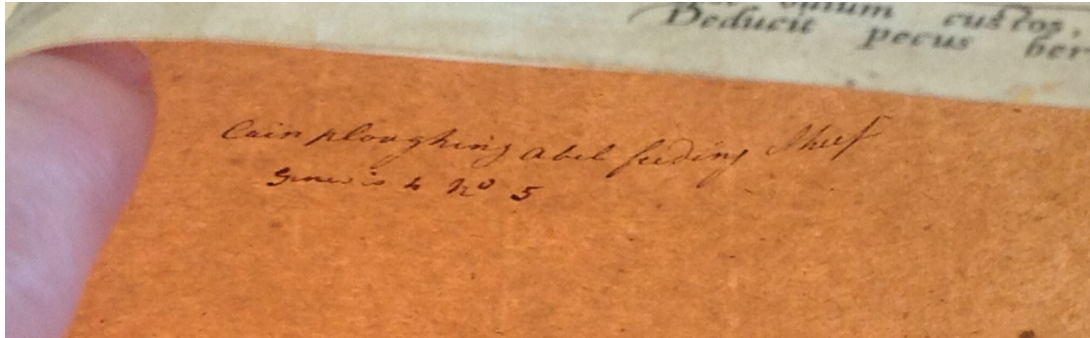 ovium custos,
Deducit pecus
Cain ploughing Abel feeding Sheep
Genesis 4 No 5